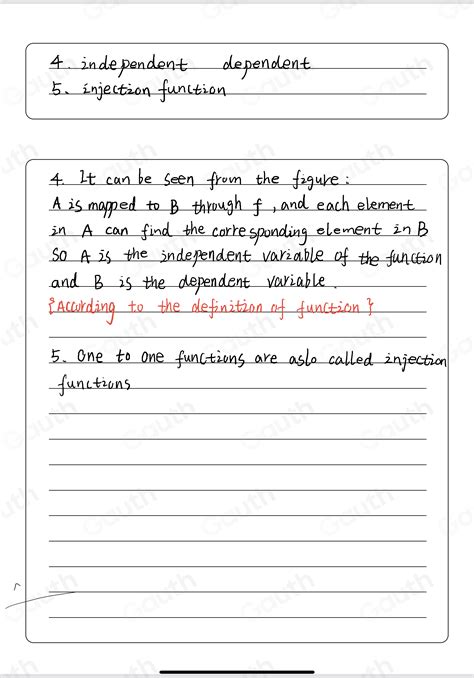 4. independent dependent
5. injection function
4. It can be seen from the figure:
A is mapped to B through f, and each element
in A can find the corresponding element in B
So A is the independent variable of the function
and B is the dependent variable.
{According to the definition of function}
5. One to one functions are aslo called injection
functions